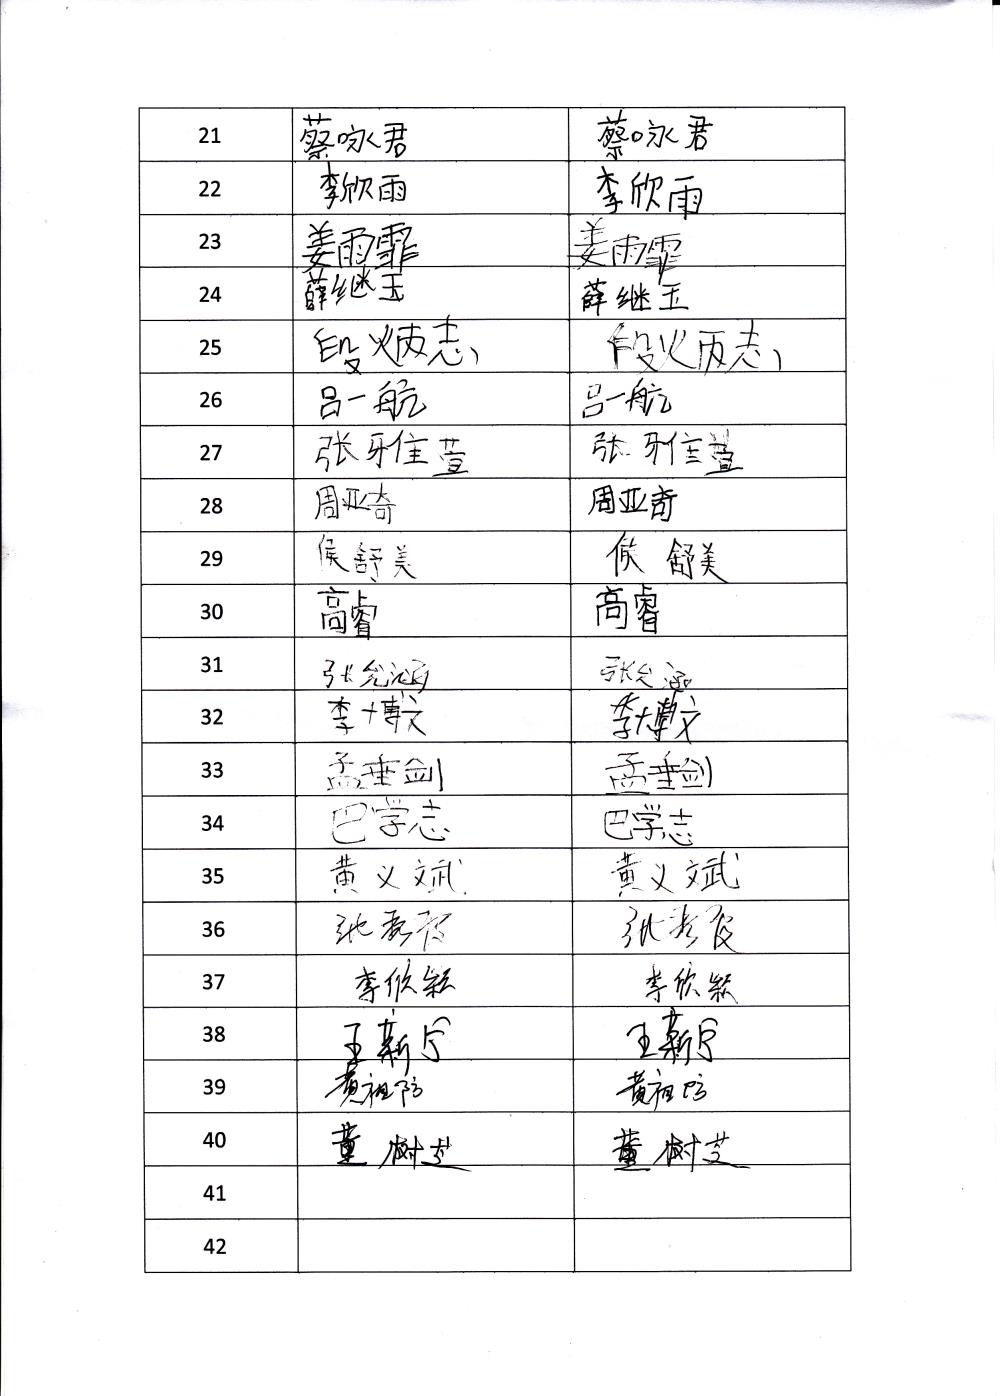 21 蔡咏君 蔡咏君
22 李欣雨 李欣雨
23 姜雨霏 姜雨霏
24 薛继玉 薛继玉
25 段炳志 段炳志
26 吕一航 吕一航
27 张雅萱 张雅萱
28 周亚奇 周亚奇
29 侯舒美 侯舒美
30 高睿 高睿
31 张允涵 张允涵
32 李博文 李博文
33 孟垂剑 孟垂剑
34 巴学志 巴学志
35 黄义斌 黄义斌
36 张 张
37 李欣颖 李欣颖
38 王新 王新
39 黄祖防 黄祖防
40 董树芝 董树芝
41
42